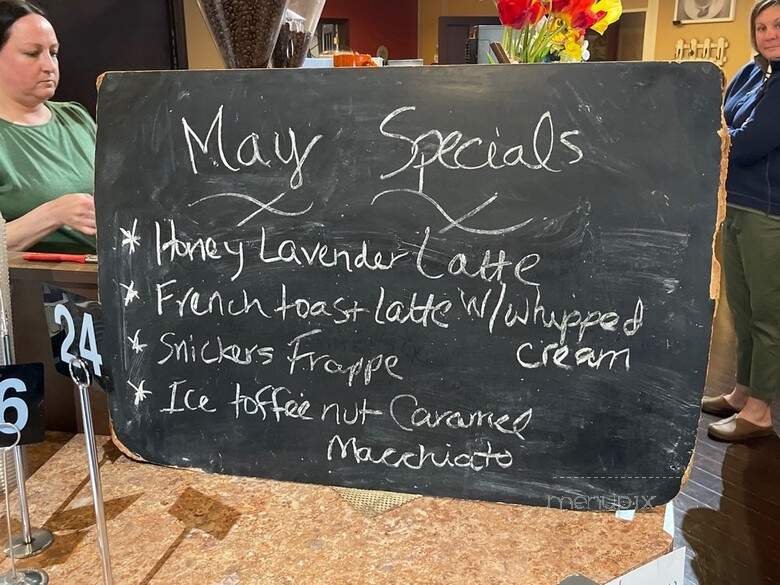 May Specials
* Honey Lavender Latte
* French toast latte w/whipped
cream
* Snickers Frappe
* Ice toffee nut Caramel
Macchiato
24
6
menupix